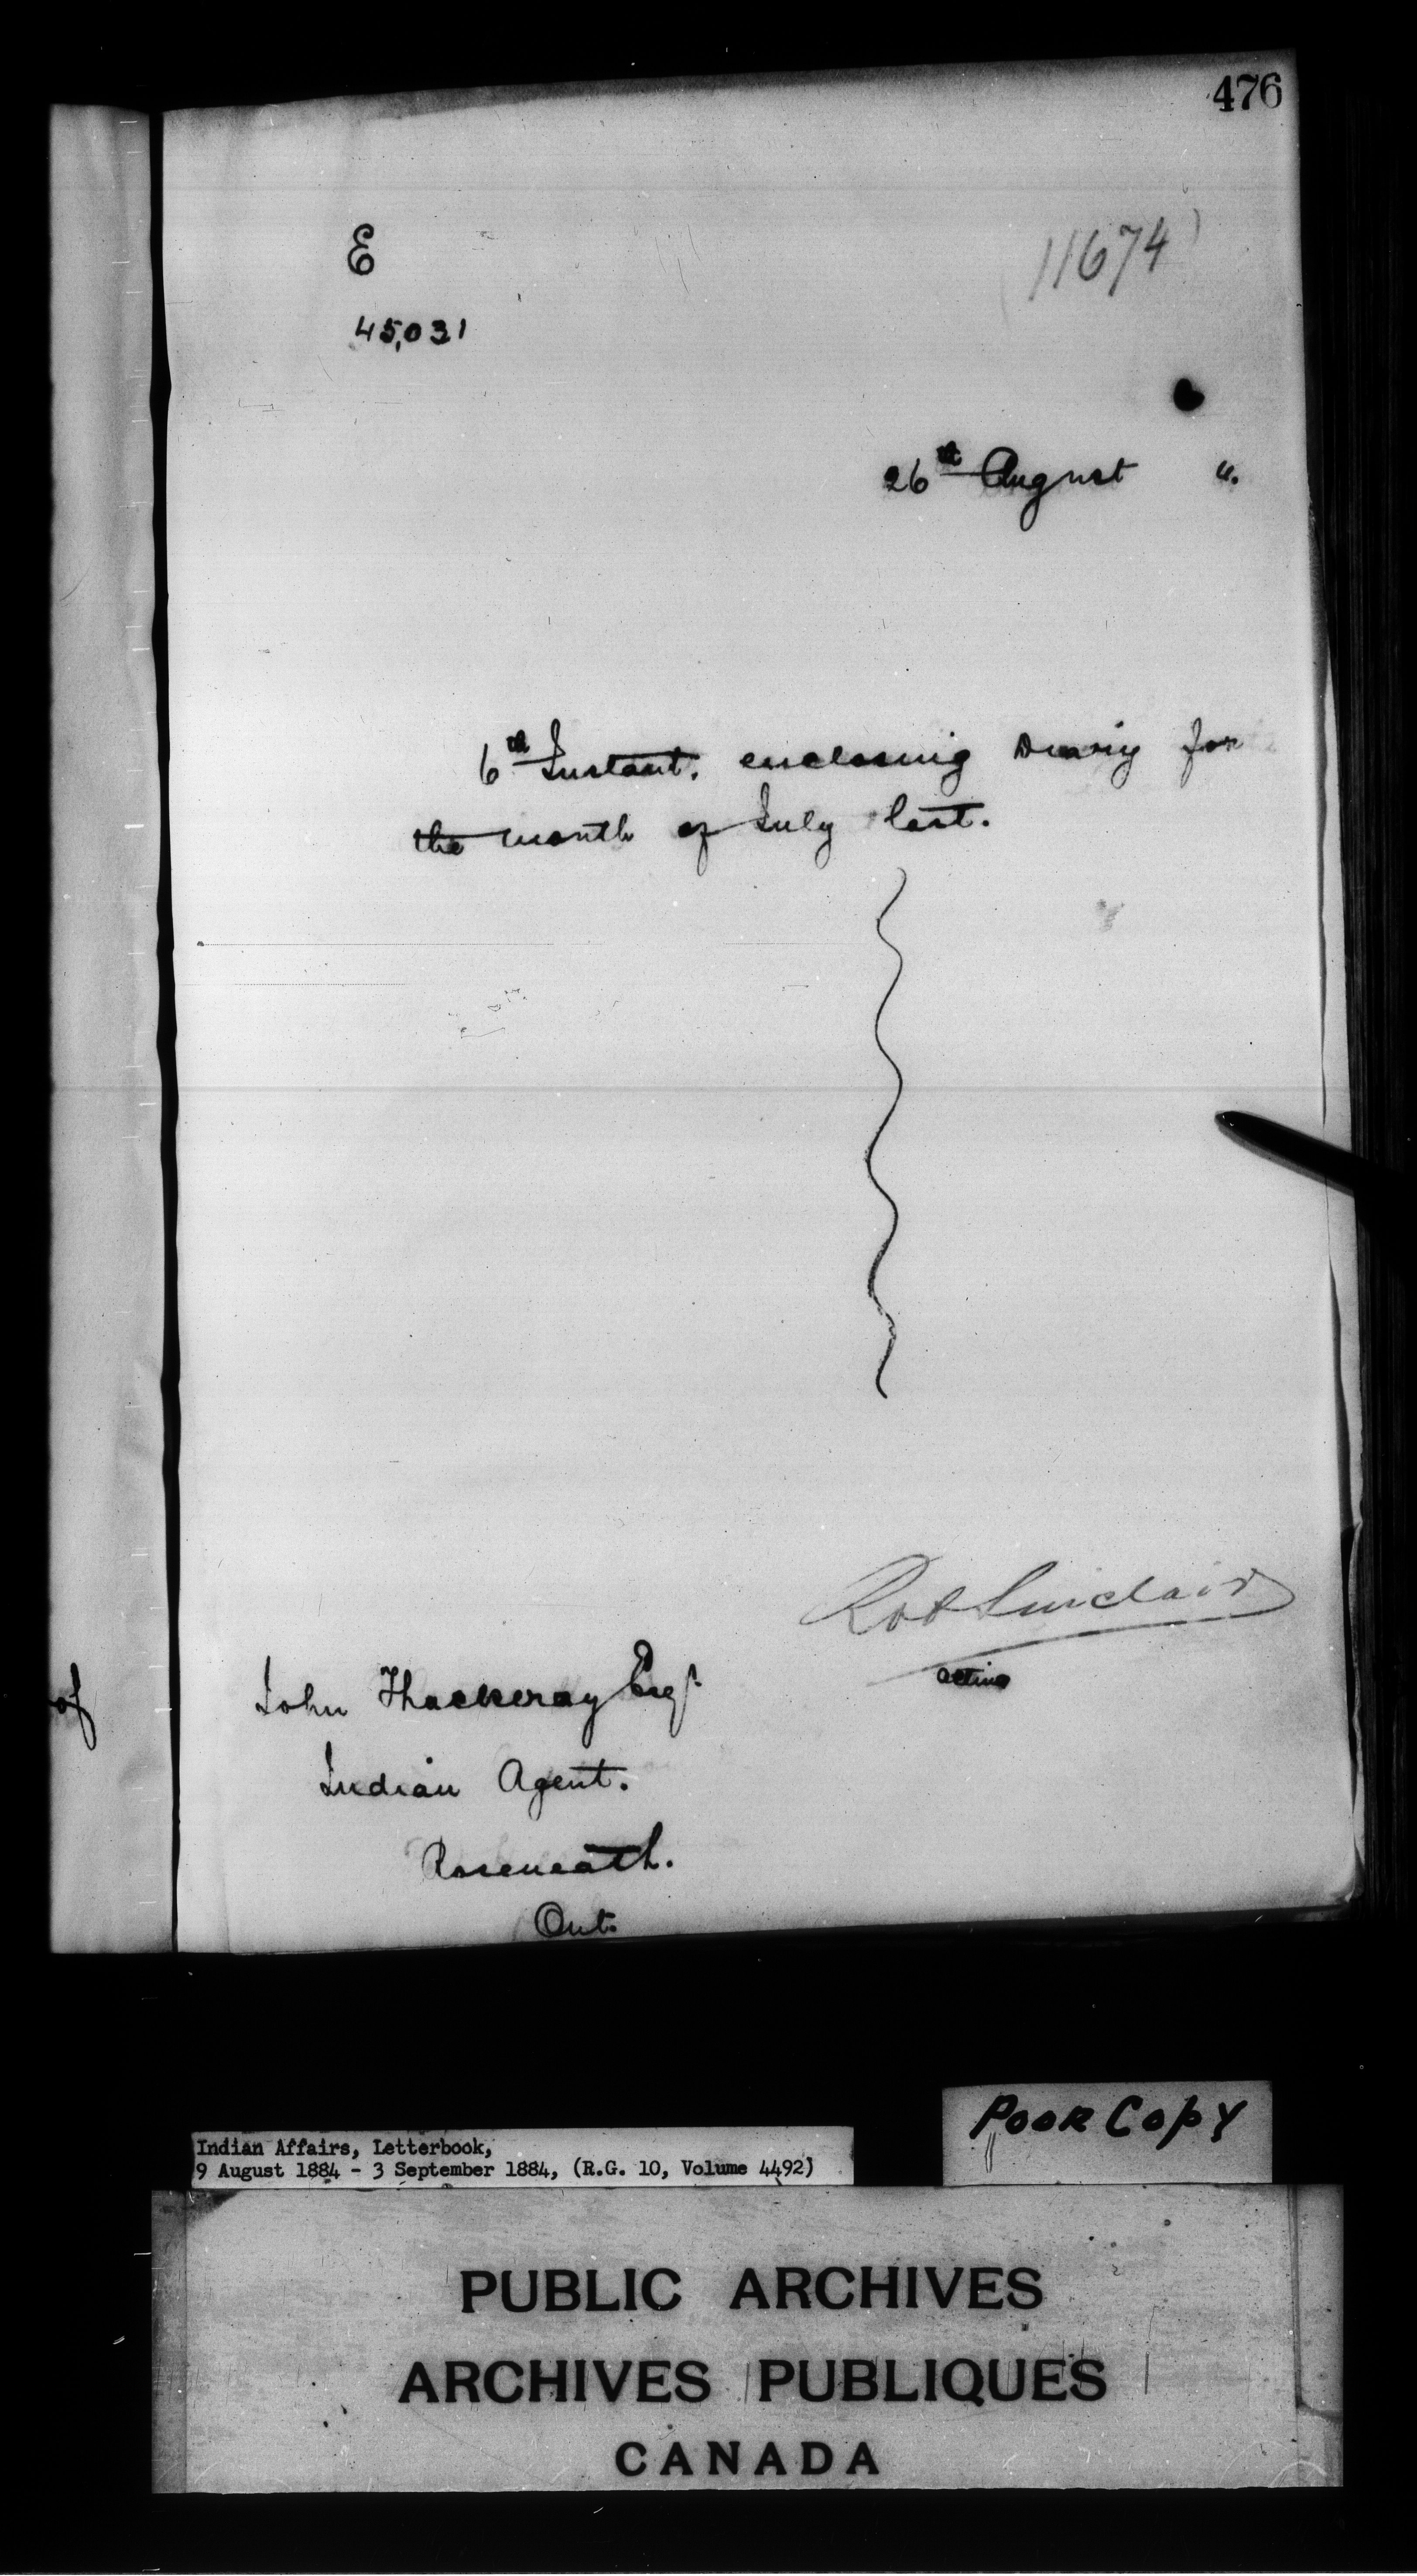 476
E
11674
45,031
26th August ".
6th Instant. enclosing Diary for
the month of July last.
Rob Sinclair
acting
of
John Thackeray Esqr
Indian Agent.
Roseneath.
Ont.
POOR COPY
Indian Affairs, Letterbook,
9 August 1884 - 3 September 1884, (R.G. 10, Volume 4492)
PUBLIC ARCHIVES
ARCHIVES PUBLIQUES
CANADA